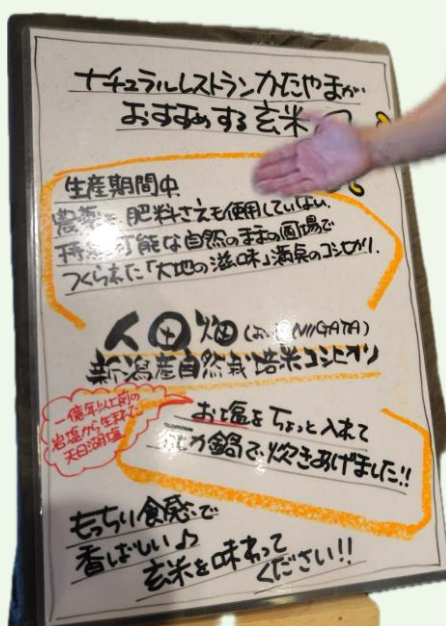 ナチュラルレストランかたやまが
おすすめする玄米
生産期間中
農薬も、肥料さえも使用していない、
持続可能な自然のままの圃場で
つくられた「大地の滋味」満点のコシヒカリ。
人田畑(in NIIGATA)
新潟産自然栽培米コシヒカリ
一億年以上前の
岩塩から生まれた
天日湖塩
お塩をちょっと入れて
圧力鍋で炊きあげました!!
もっちり食感で
香ばしい♪
玄米を味わって
ください!!